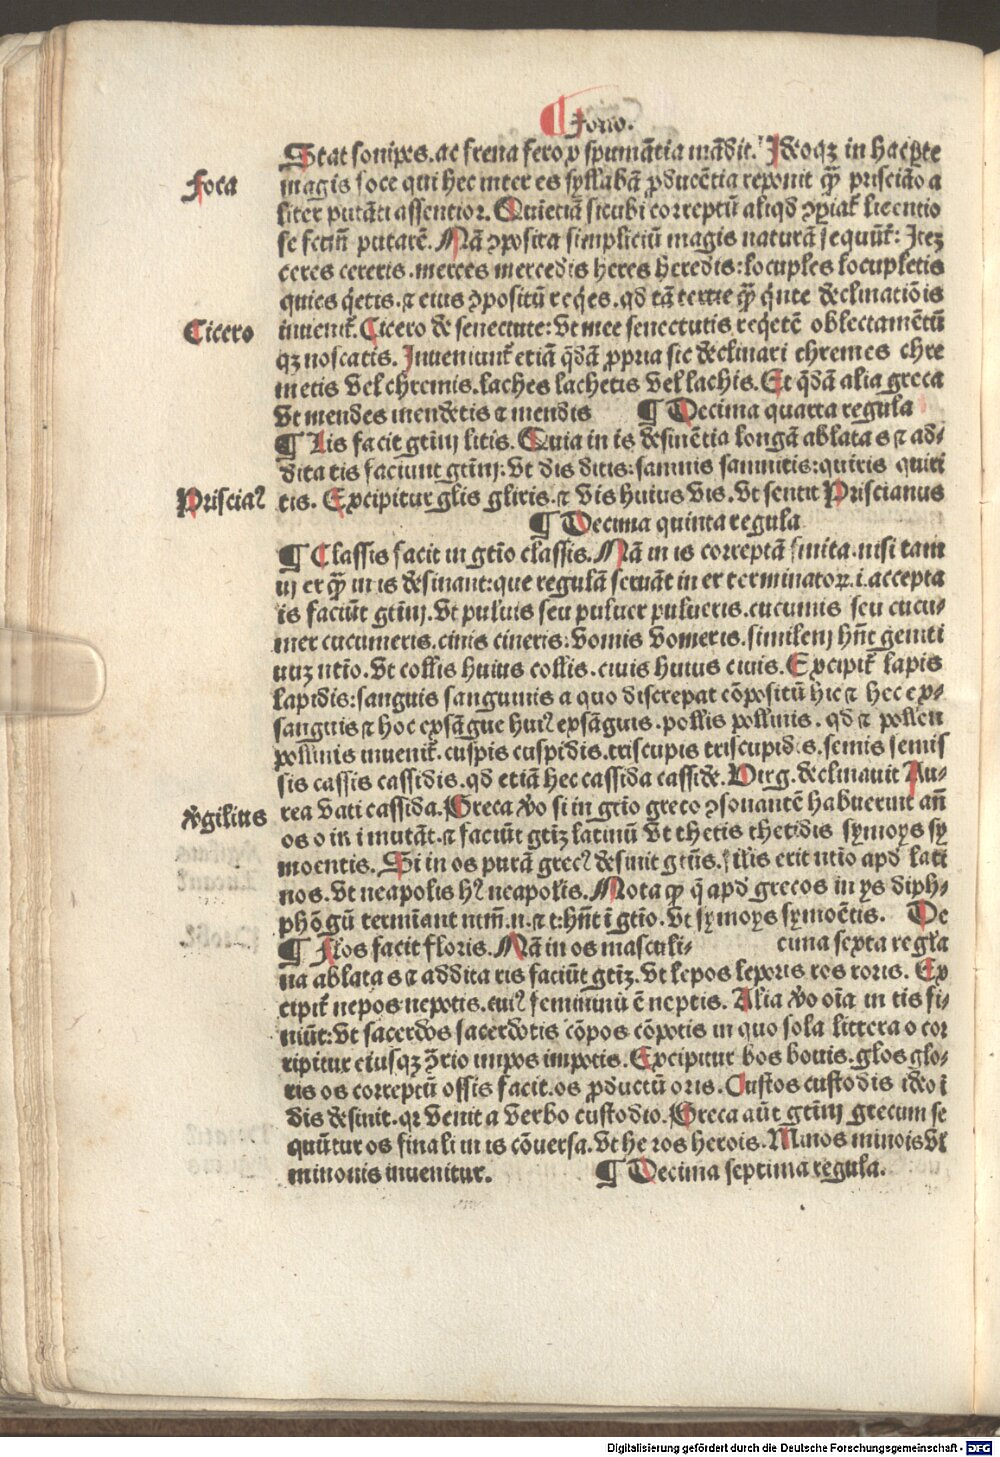 ¶ Tono.
Stat sonipes. ac frena ferox spumātia mādit. Ideoqꝫ in hac ꝑte
Foca
magis foce qui hec inter es syllabā ꝓducētia reponit qꝫ̄ prisciāo a
liter putāti assentior. Quietiā sicubi correptū aliqd ꝯꝑiat᷑ licentio
se fctm̄ putarē. Nā ꝯposita simpliciū magis naturā sequūt᷑: Itez
ceres cereris. merces mercedis heres heredis: locuples locupletis
quies q̇etis. ⁊ eius ꝯpositū reqėes. qd tā tertie qꝫ̄ q̇nte declinatiōis
Cicero
inuenit᷑. Cicero de senectute: Vt mee senectutis reqėtē oblectamētū
qꝫ noscatis. Inueniunt᷑ etiā q̄dā ꝓpria sic declinari chremes chre
metis vel chremis. laches lachetis vel lachis. Et q̄dā alia greca
Vt mendes mendetis ⁊ mendis ¶ Decima quarta regula
¶ Lis facit gtīuj litis. Quia in is desinētia longā ablata s ⁊ ad⸗
dita tis faciunt gtīuj: Vt dis ditis: samnis samnitis: quiris quiri
Prisciaꝰ
tis. Excipitur glis gliris. ⁊ vis huius vis. Vt sentit Priscianus
¶ Decima quinta regula
¶ Classis facit in gtīo classis. Nā in is correptā finita. nisi tam
in er qꝫ̄ in is desinant: que regulā seruāt in er terminatoꝝ. i. accepta
is faciūt gtīuj. Vt puluis seu puluer pulueris. cucumis seu cucu⸗
mer cucumeris. cinis cineris: vomis vomeris. similem hn̄t geniti
uuꝫ ntīo. Vt collis huius collis. ciuis huius ciuis. Excipit᷑ lapis
lapidis: sanguis sanguinis a quo discrepat cōpositū hic ⁊ hec ex⸗
sanguis ⁊ hoc exsāgue huiꝰ exsāguis. pollis pollinis. qd ⁊ pollen
pollinis inuenit᷑. cuspis cuspidis. triscupis triscupidis. semis semis
sis cassis cassidis. qd etiā hec cassida casside. Virg. declinauit Au⸗
Vgilius
rea vati cassida. Greca ṽo si in gtīo greco ꝯsonantē habuerint an̄
os o in i mutāt. ⁊ faciūt gtīꝫ latinū Vt thetis thetidis symoys sy
moentis. Si in os purā grecꝰ desinit gtūs. silis erit ntīo apd lati
nos. Vt neapolis hꝰ neapolis. Nota ꝙ q̄ apd grecos in ys diph⸗
phōgū termīant ntm̄. n. ⁊ t: hn̄t ī gtīo. Vt symoys symoētis. De
¶ Flos facit floris. Nā in os masculi⸗ cima sexta regl̄a
na ablata s ⁊ addita ris faciūt gtīꝫ. Vt lepos leporis ros roris. Ex
cipit᷑ nepos nepotis. cuiꝰ femininū ē neptis. Alia ṽo oīa in tis fi⸗
niūt: Vt sacerdos sacerdotis cōpos cōpotis in quo sola littera o cor
ripitur eiusqꝫ ꝯ̄rio impos impotis. Excipitur bos bouis. glos glo⸗
ris os correptū ossis facit. os ꝓductū oris. Custos custodis ideo ī
dis desinit. qꝛ venit a verbo custodio. Greca aūt gtīuj grecum se
quūtur os finali in is cōuersa. Vt he ros herois. Minos minois vl̄
minonis inuenitur. ¶ Decima septima regula.
Digitalisierung gefördert durch die Deutsche Forschungsgemeinschaft - DFG